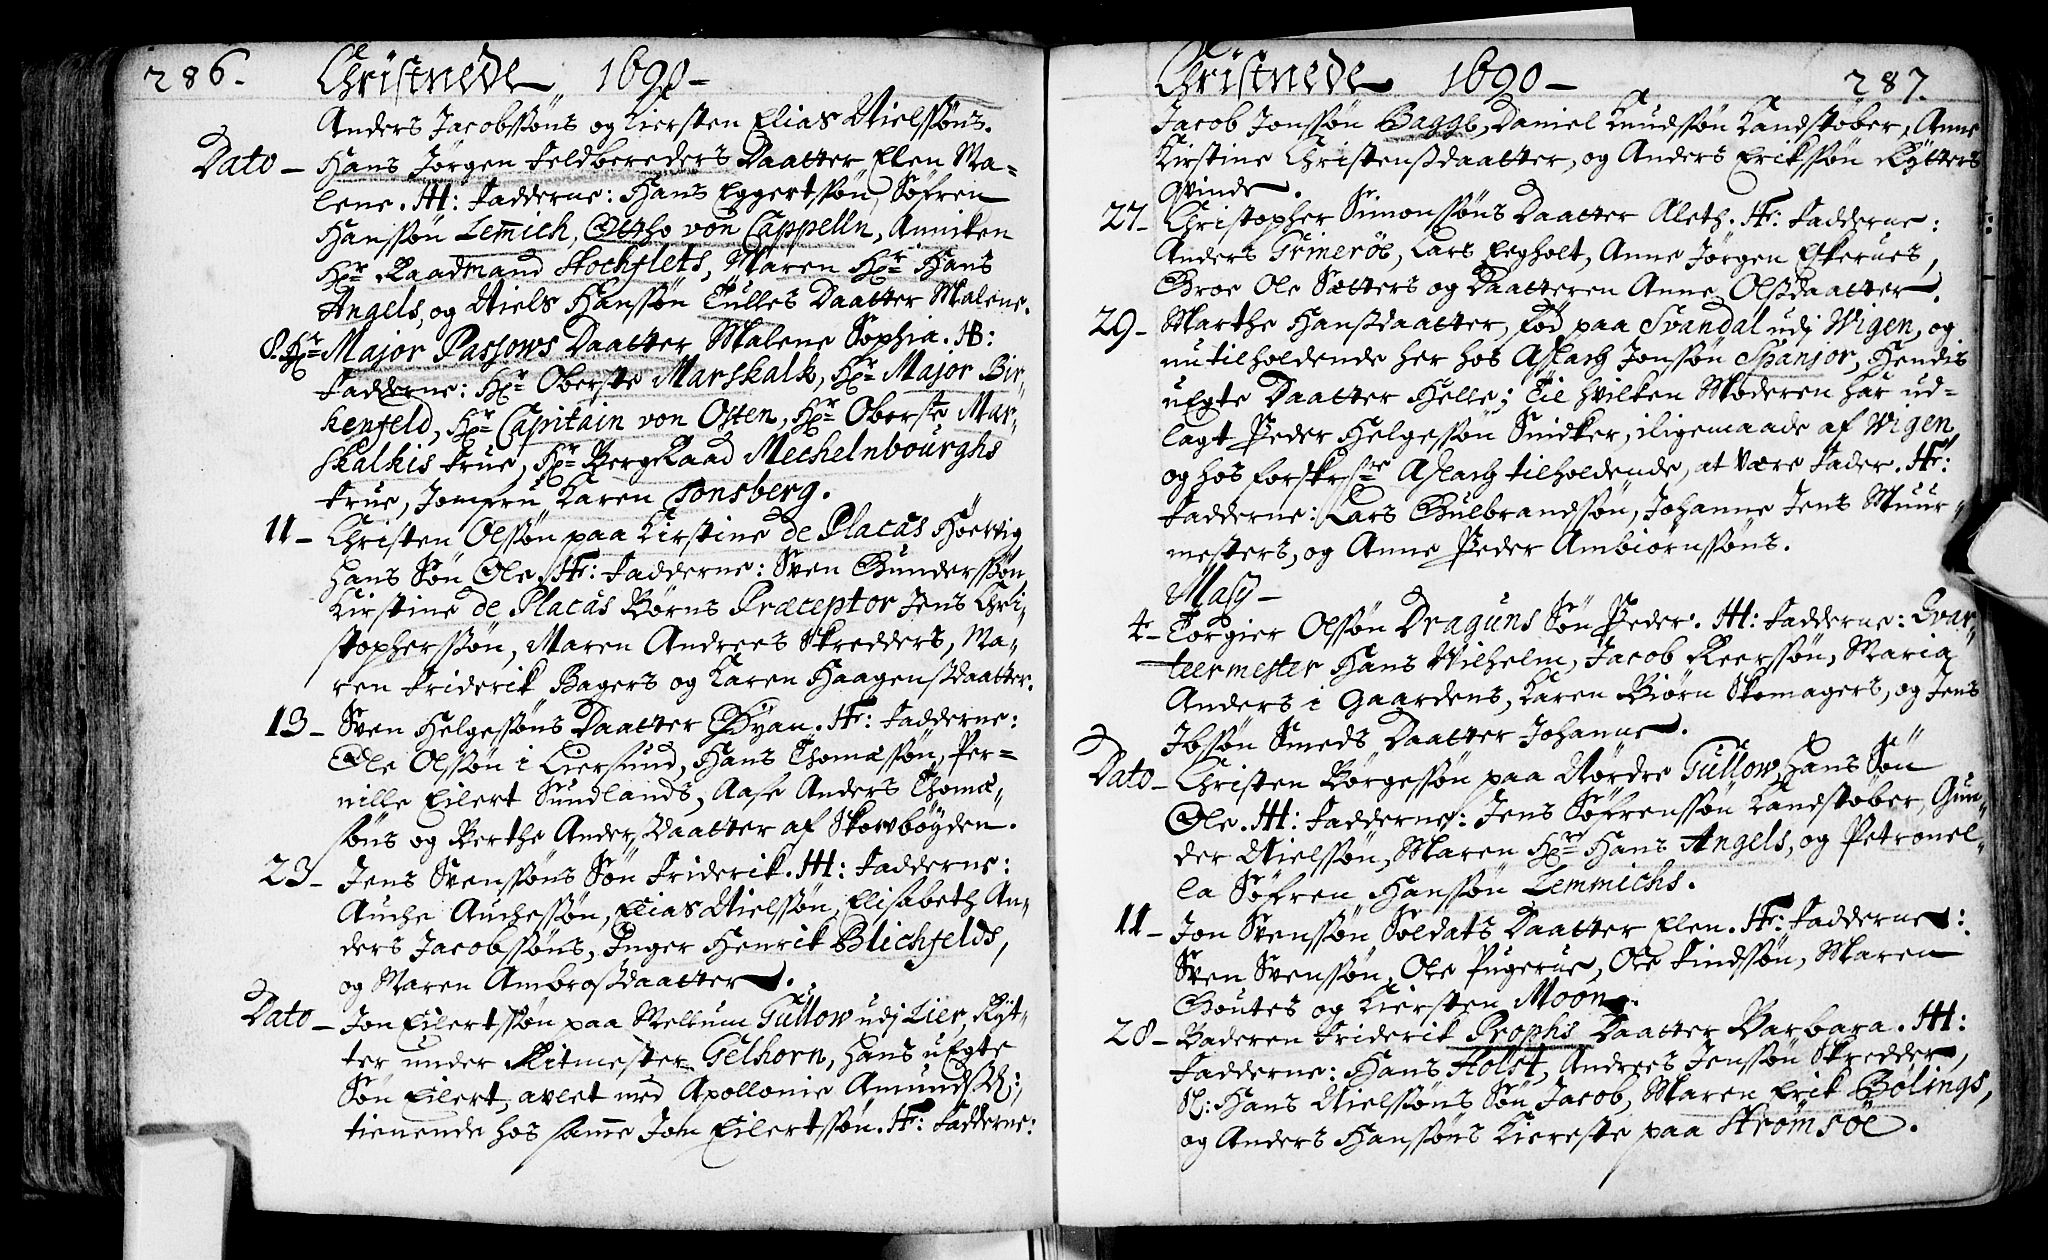 286.
Christnede 1690-
Anders Jacobssøns og Kiersten Elias Nielssøns.
Dato - Hans Jørgen Feldbereders Daatter Elen Ma-
lene. H: Fadderne: Hans Eggertssøn, Søfren
Hanssøn Lem̄ich, Ottho von Cappelln, Anniken
Hr Raadmand Stochflets, Maren Hr Hans
Angels, og Niels Hanssøn Tulles Daatter Malene.
8. Hr Major Passows Daatter Malene Sophia. H:
Fadderne: Hr Oberste Marskalk, Hr Major Bir-
kenfeld, Hr Capitain von Osten, Hr Oberste Mar-
skalkis Frue, Hr BergRaad Mechelnbourghs
Frue, Jomfru Karen Tonsberg.
11 - Christen Olssøn paa Kirstine de Placas Høevig
hans Søn Ole. H: Fadderne: Sven Gunderssøn,
Kirstine de Placas Børns Præceptor Jens Chri-
stopherssøn, Maren Andrees Skredders, Ma-
ren Friderik Bagers og Karen Haagensdaatter.
13 - Sven Helgessøns Daatter Gyan. H: Fadderne:
Ole Olssøn i Liersund, Hans Thomæssøn, Per-
nille Eilert Sundlands, Aase Anders Thomæ-
søns og Berthe Andersdaatter af Skovbøyden.
23 - Jens Svenssøns Søn Friderik. H: Fadderne:
Auche Auchessøn, Elias Nielssøn, Elisabeth An-
ders Jacobssøns, Inger Henrik Blichfelds,
og Maren Ambrosdaatter.
Dato - Jon Eilertssøn paa Mellum Gullow udj Lier, Ryt-
ter under Ritmester Gelhorn, hans uEgte
Søn Eilert, avlet med Apollonie Amundsd:
tienende hos samme Jon Eilertssøn. H: Fadderne:
287.
Christnede 1690-
Jacob Jonssøn Bagge, Daniel Knudssøn Kandstøber, Anne
Kirstine Christensdaatter, og Anders Erikssøn Rytters
Qvinde.
27 - Christopher Simonssøns Daatter Aleth. H: Fadderne:
Anders Grimerøe, Lars Eegholt, Anne Jørgen Eskerues,
Groe Ole Sætters og Daatteren Anne Olsdaatter.
29 - Marthe Hansdaatter, fød paa Svandal udj Wigen, og
nu tilholdende her hos Aslach Jonssøn Spanior, Hendis
uEgte Daatter Helle; Til hvilken Moderen har ud-
lagt Peder Helgessøn Snidker, iligemaade af Wigen,
og hos forskrefne Aslach tilholdende, at være Fader. H:
Fadderne: Lars Gulbrandssøn, Johanne Jens Muur-
mesters, og Anne Peder Ambiørnssøns.
Maj -
4 - Torgier Olssøn Draguns Søn Peder. H: Fadderne: Qvar-
teermester Hans Wilhelm, Jacob Reerssøn, Maria
Anders i Gaardens, Karen Biørn Skomagers, og Jens
Ibssøn Smeds Daatter Johanne.
Dato - Christen Børgessøn paa Nordre Gullow, hans Søn
Ole. H: Fadderne: Jens Søfrenssøn Kandstøber, Gun-
der Nielssøn, Maren Hr Hans Angels, og Petronel-
la Søfren Hanssøn Lemmichs.
11 - Jon Svenssøn Soldats Daatter Elen. H: Fadderne:
Sven Svenssøn, Ole Pugerue, Ole Findssøn, Maren
Goutes og Kiersten Moon.
28 - Baderen Friderik Prophs Daatter Barbara. H:
Fadderne: Hans Holst, Andrees Jenssøn Skredder,
Sl: Hans Nielssøns Søn Jacob, Maren Erik Bølings,
og Anders Hanssøns Kiereste paa Strømsøe.